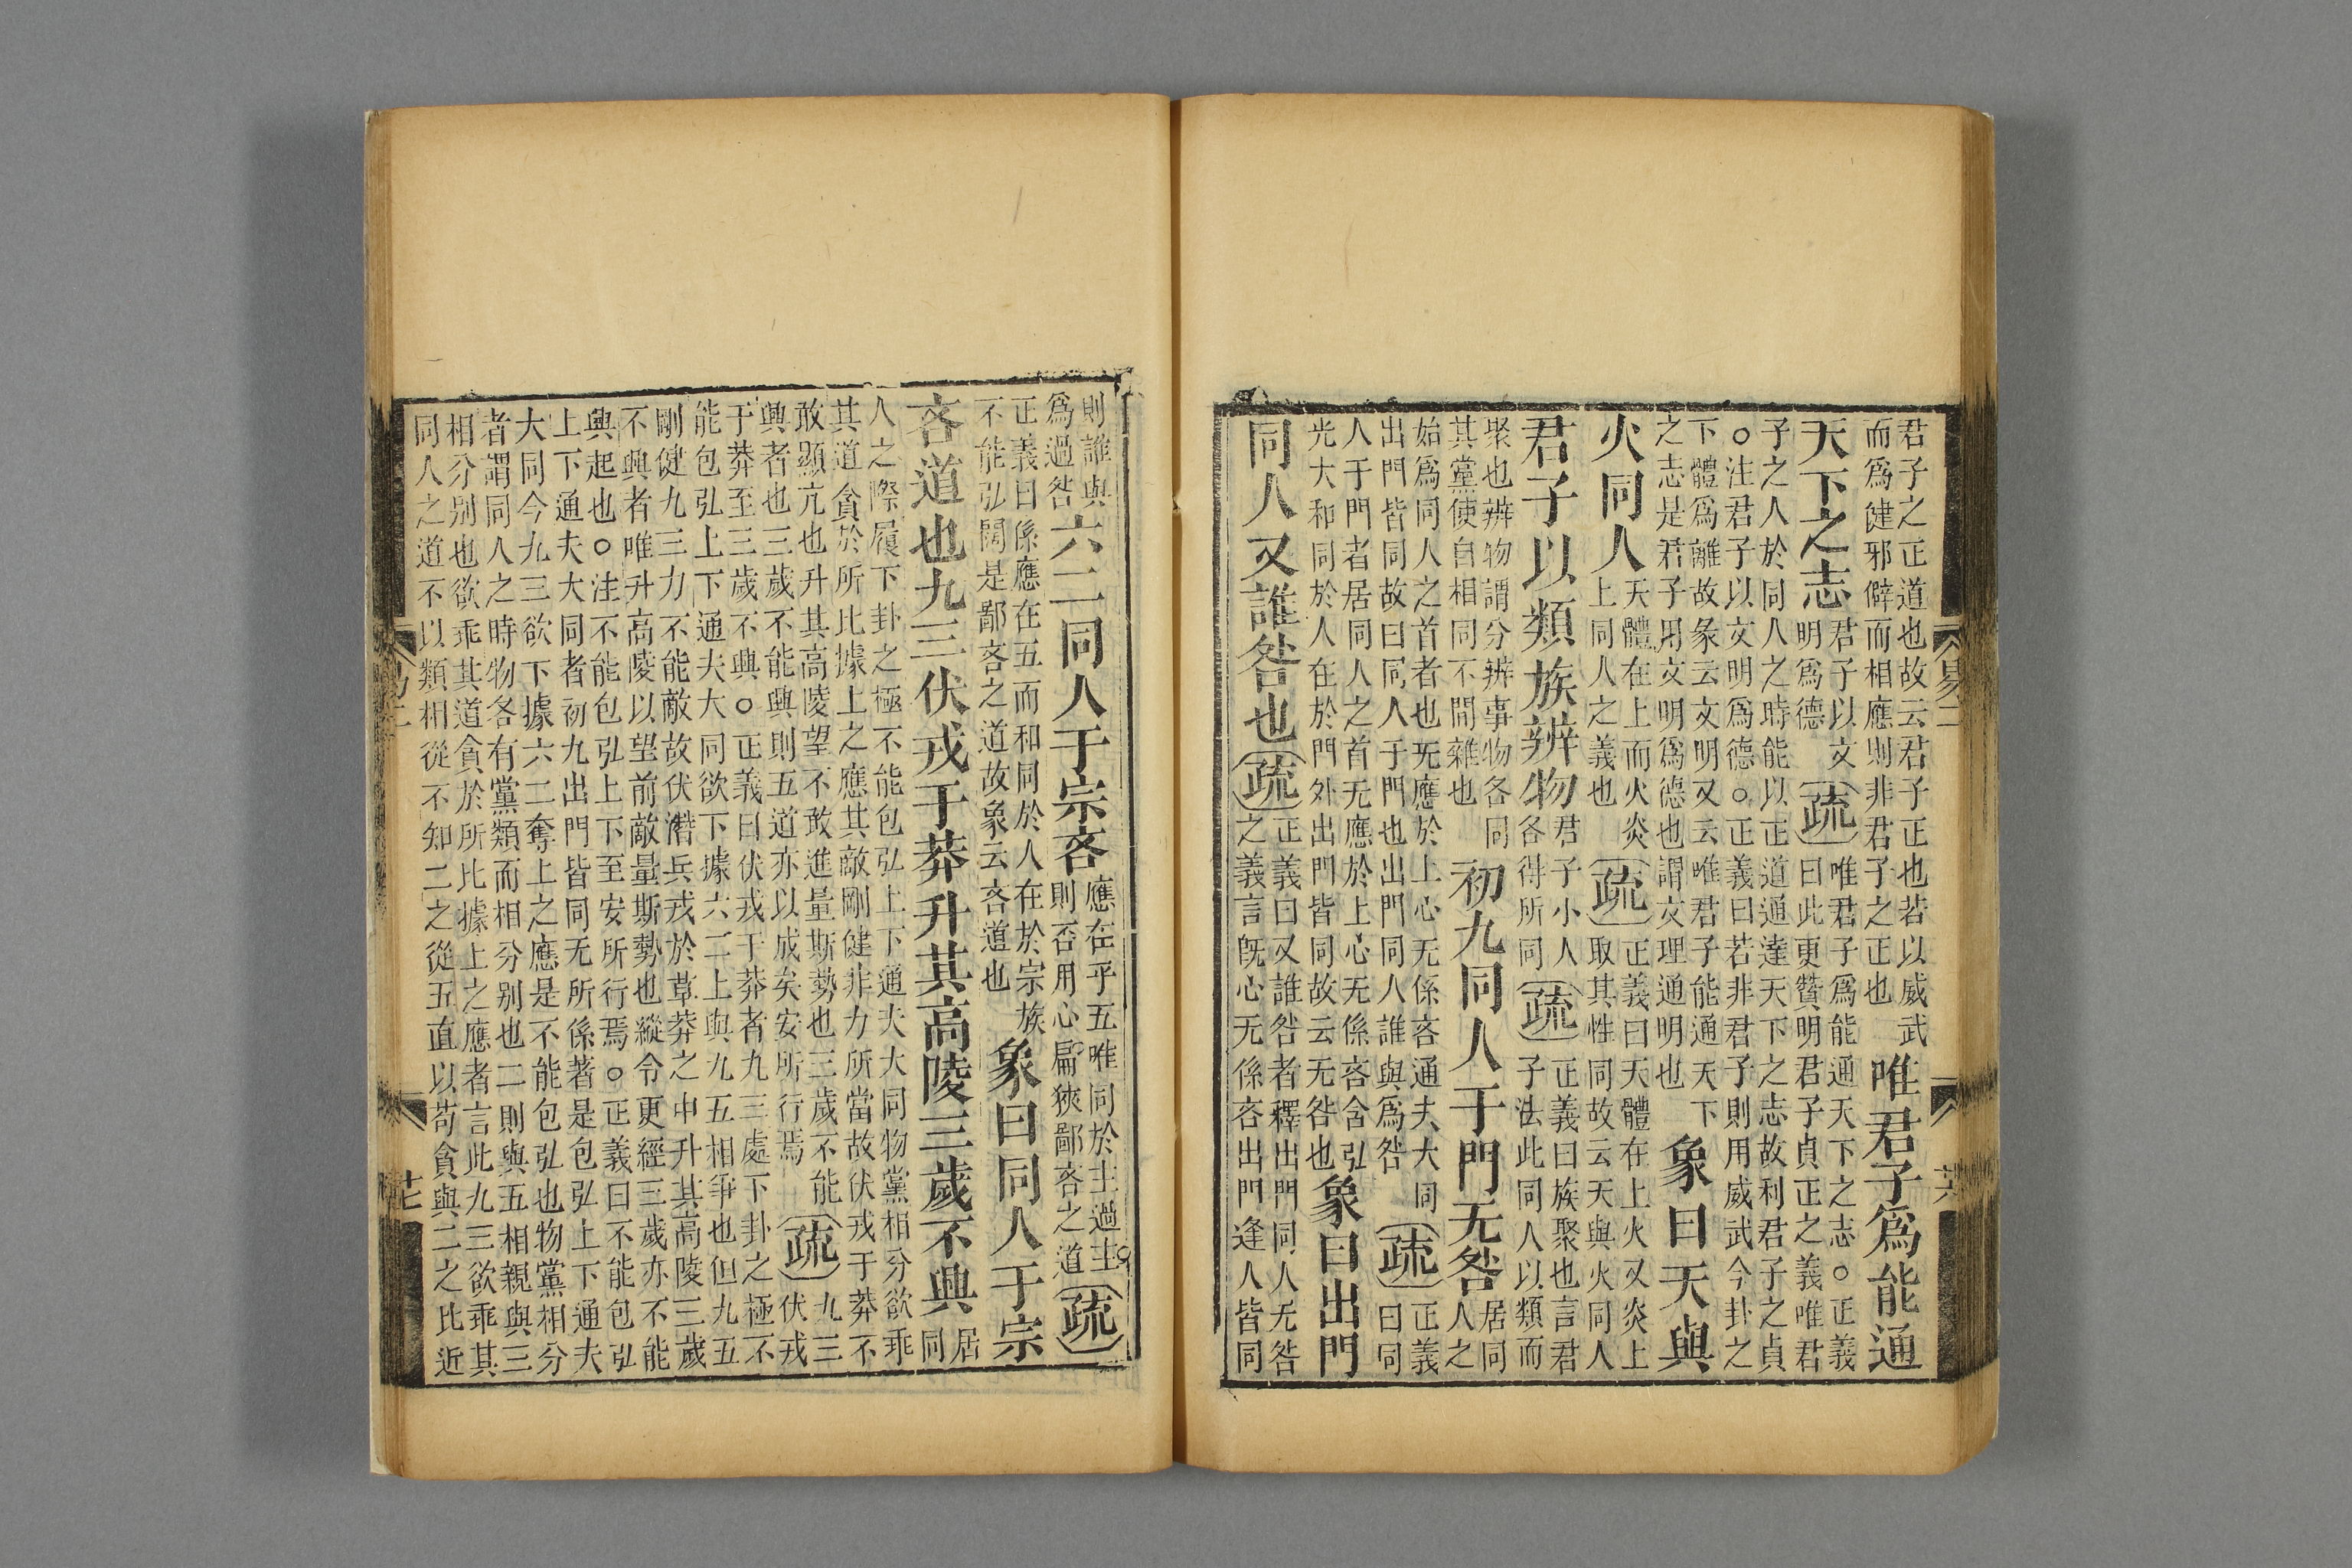 君子之正道也故云君子正也若以威武
而爲健邪僻而相應則非君子之正也
唯君子爲能通
天下之志
君子以文
明爲德
疏
唯君子爲能通天下之志○正義
曰此更贊明君子貞正之義唯君
子之人於同人之時能以正道通達天下之志故利君子之貞
○注君子以文明爲德○正義曰若非君子則用威武今卦之
下體爲離故彖云文明又云唯君子能通天下
之志是君子用文明爲德也謂文理通明也
象曰天與
火同人
天體在上而火炎
上同人之義也
疏
正義曰天體在上火又炎上
取其性同故云天與火同人
君子以類族辨物
君子小人
各得所同
疏
正義曰族聚也言君
子法此同人以類而
聚也辨物謂分辨事物各同
其黨使自相同不間雜也
初九同人于門无咎
居同
人之
始爲同人之首者也旡應於上心无係吝通夫大同
出門皆同故曰同人于門也出門同人誰與爲咎
疏
正義
曰同
人于門者居同人之首无應於上心无係吝含弘
光大和同於人在於門外出門皆同故云无咎也
象曰出門
同人又誰咎也
疏
正義曰又誰咎者釋出門同人无咎
之義言旣心无係吝出門逢人皆同
易二
則誰與
爲過咎
六二同人于宗吝
應在乎五唯同於主過主
則否用心扁狹鄙吝之道
疏
正義曰係應在五而和同於人在於宗族
不能弘闊是鄙吝之道故象云吝道也
象曰同人于宗
吝道也九三伏戎于莽升其高陵三歲不興
居
同
人之際履下卦之極不能包弘上下通夫大同物黨相分欲乖
其道貪於所比據上之應其敵剛健非力所當故伏戎于莽不
敢顯亢也升其高陵望不敢進量斯勢也三歲不能
興者也三歲不能興則五道亦以成矣安所行焉
疏
九三
伏戎
于莽至三歲不興○正義曰伏戎于莽者九三處下卦之極不
能包弘上下通夫大同欲下據六二上與九五相爭也但九五
剛健九三力不能敵故伏潛兵戎於草莽之中升其高陵三歲
不興者唯升高陵以望前敵量斯勢也縱令更經三歲亦不能
興起也○注不能包弘上下至安所行焉○正義曰不能包弘
上下通夫大同者初九出門皆同无所係著是包弘上下通夫
大同今九三欲下據六二奪上之應是不能包弘也物黨相分
者謂同人之時物各有黨類而相分别也二則與五相親與三
相分别也欲乖其道貪於所比據上之應者言此九三欲乖其
同人之道不以類相從不知二之從五直以苟貪與二之比近